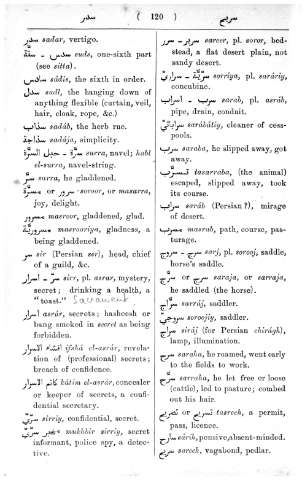 سدر ( 120 ) سريح
سدر sadar, vertigo.
سدس - سدّة suds, one-sixth part
(see sitta).
سادس sādis, the sixth in order.
سدل sadl, the hanging down of
anything flexible (curtain, veil,
hair, cloak, rope, &c.)
سذاب sadāb, the herb rue.
سذاجة sadāja, simplicity.
سرّة - حبل السرّة surra, navel; habl
el-surra, navel-string.
سرّ surra, he gladdened.
سرور or مسرّة soroor, or masarra,
joy, delight.
مسرور masroor, gladdened, glad.
مسروريّة masrooriya, gladness, a
being gladdened.
سر sir (Persian ser), head, chief
of a guild, &c.
سرّ - اسرار sirr, pl. asrar, mystery,
secret; drinking a health, a
"toast." Sacrament
اسرار asrār, secrets; hasheesh or
bang smoked in secret as being
forbidden.
افشاء الاسرار ifshā el-asrār, revela-
tion of (professional) secrets;
breach of confidence.
كاتم الاسرار kātim el-asrār, concealer
or keeper of secrets, a confi-
dential secretary.
سرّيّ sirriy, confidential, secret.
مخبر سرّيّ mukhbir sirriy, secret
informant, police spy, a detec-
tive.
سرير - سرر sareer, pl. soror, bed-
stead, a flat desert plain, not
sandy desert.
سرّيّة - سراري sorrīya, pl. sarāriy,
concubine.
سرب - اسراب sarab, pl. asrāb,
pipe, drain, conduit.
سراباتي sarābātiy, cleaner of cess-
pools.
سرب saraba, he slipped away, got
away.
تسرّب tasarraba, (the animal)
escaped, slipped away, took
its course.
سراب sarāb (Persian ?), mirage
of desert.
مسرب masrab, path, course, pas-
turage.
سرج - سروج sarj, pl. sorooj, saddle,
horse's saddle.
سرج or سرّج saraja, or sarraja,
he saddled (the horse).
سرّاج sarrāj, saddler.
سروجي soroojiy, saddler.
سراج sirāj (for Persian chirāgh),
lamp, illumination.
سرح saraha, he roamed, went early
to the fields to work.
سرّح sarraha, he let free or loose
(cattle), led to pasture; combed
out his hair.
تسريح or تصريح tasreeh, a permit,
pass, licence.
سارح sārih, pensive, absent-minded.
سريح sareeh, vagabond, pedlar.